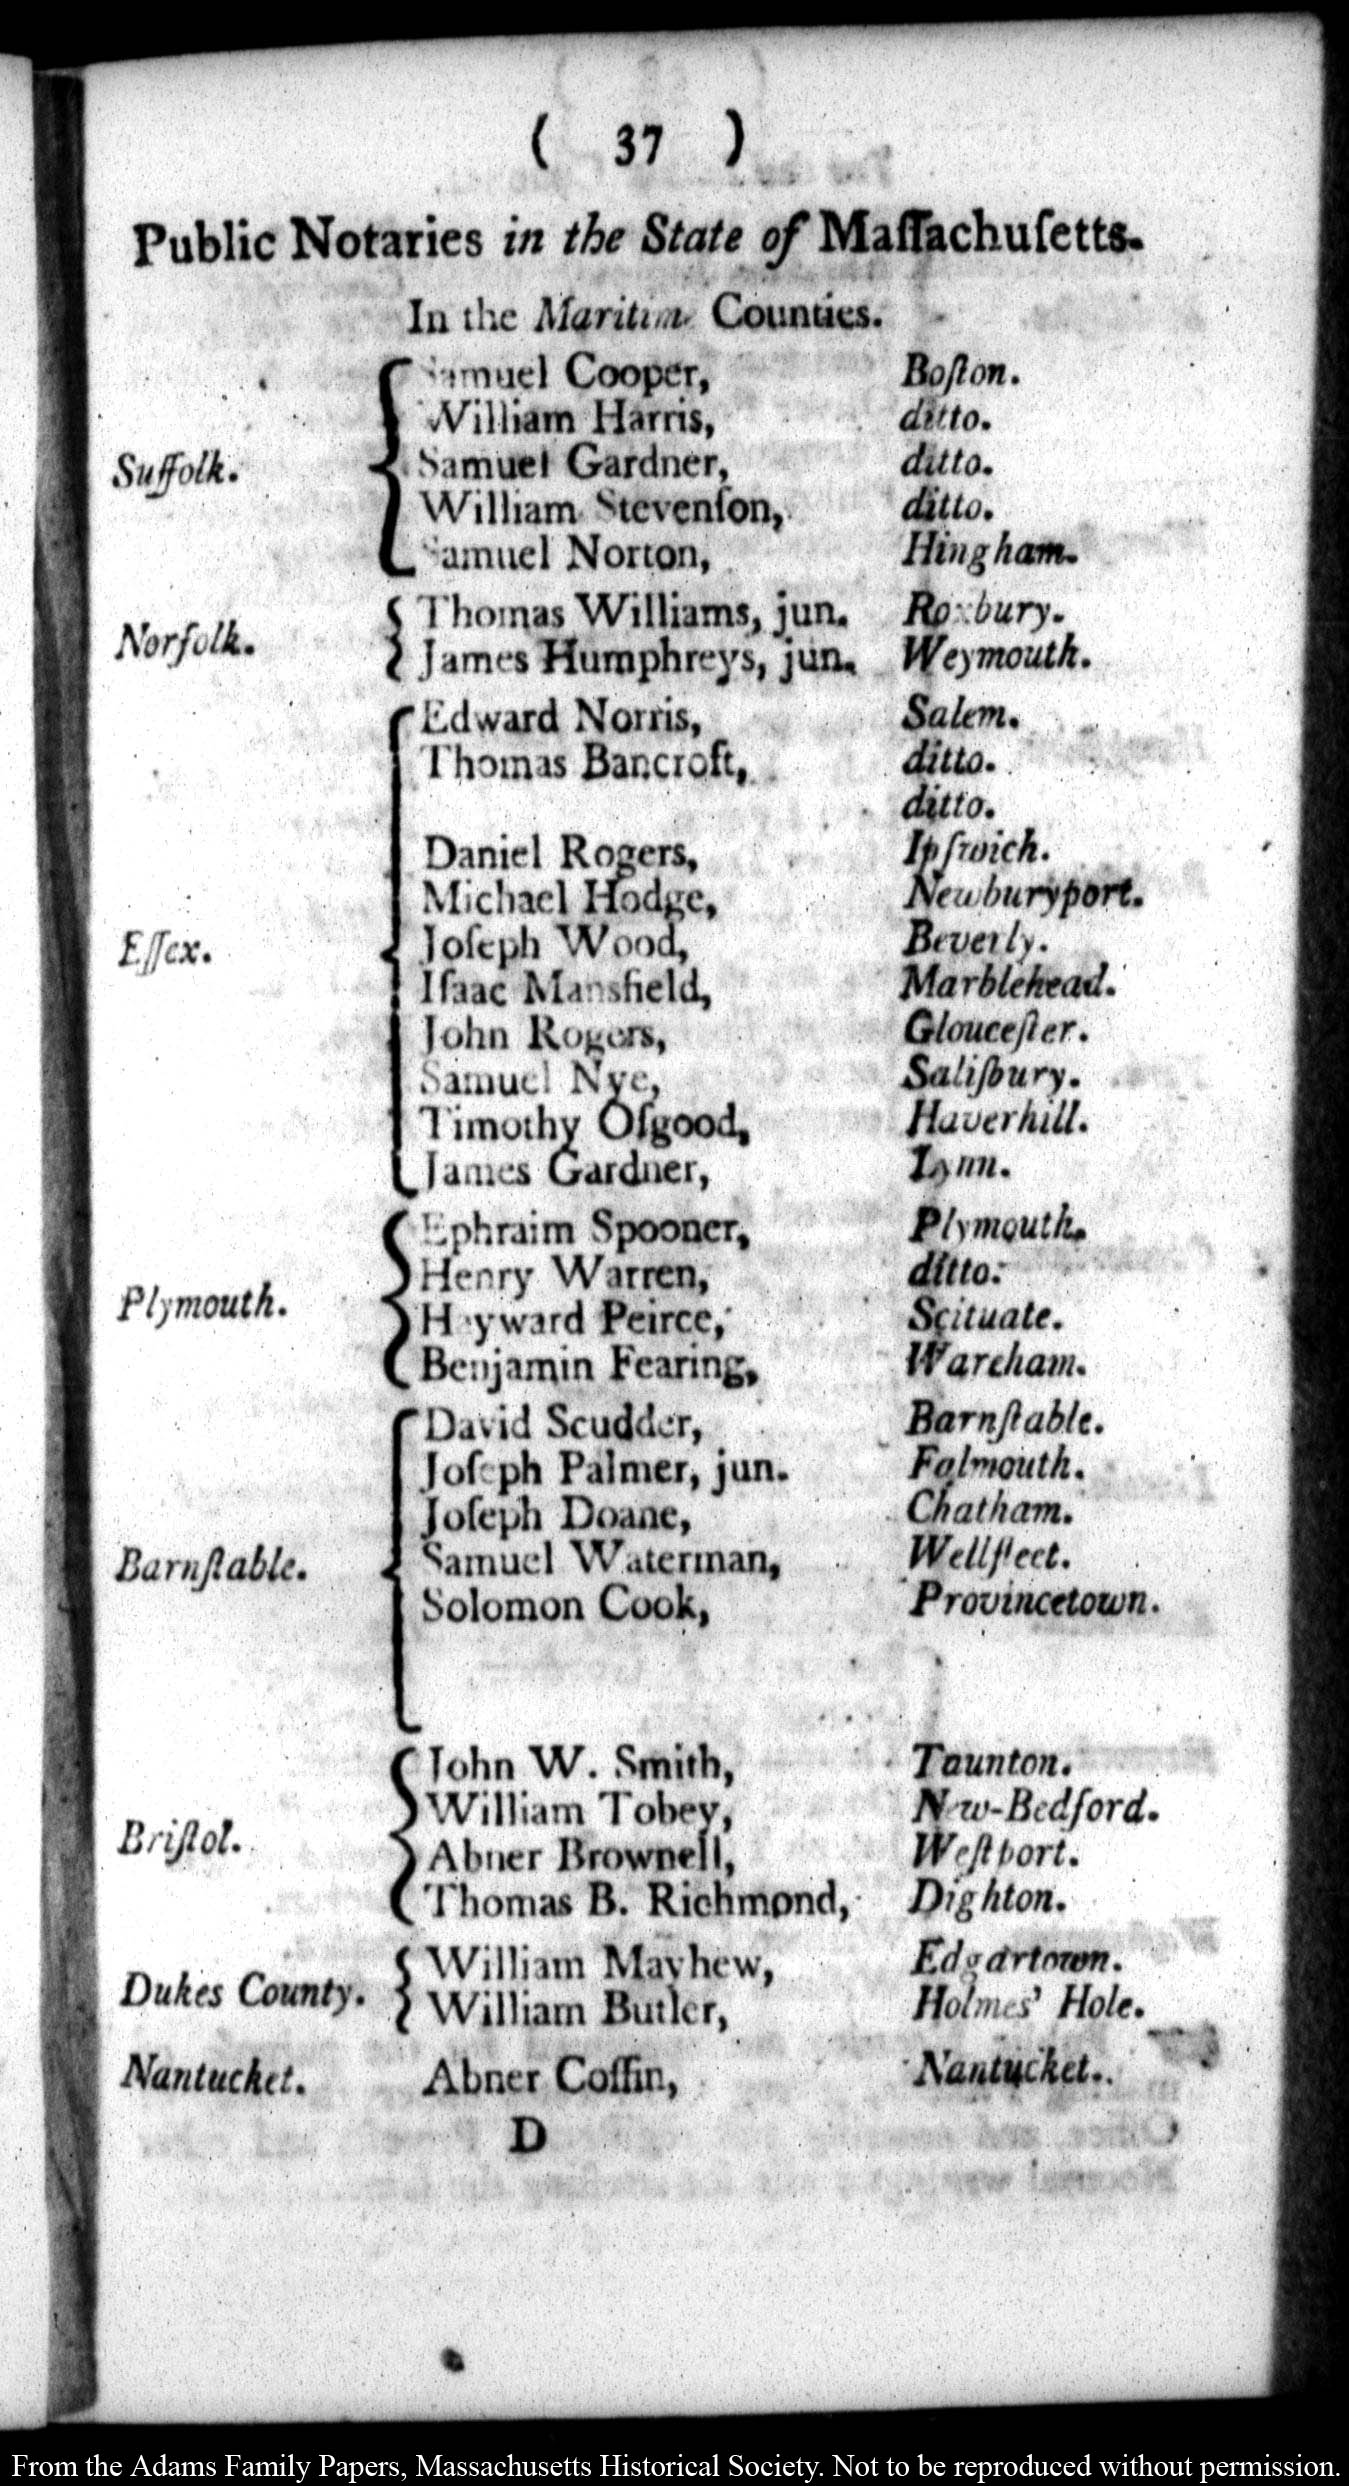 ( 37 )
Public Notaries in the State of Maſſachuſetts.
In the Maritim Counties.
Samuel Cooper, Boſton.
William Harris, ditto.
Suffolk. Samuel Gardner, ditto.
William Stevenſon, ditto.
Samuel Norton, Hingham.
Norfolk. Thomas Williams, jun. Roxbury.
James Humphreys, jun. Weymouth.
Edward Norris, Salem.
Thomas Bancroft, ditto.
ditto.
Daniel Rogers, Ipſwich.
Michael Hodge, Newburyport.
Eſſex. Joſeph Wood, Beverly.
Iſaac Mansfield, Marblehead.
John Rogers, Glouceſter.
Samuel Nye, Saliſbury.
Timothy Oſgood, Haverhill.
James Gardner, Lynn.
Ephraim Spooner, Plymouth.
Henry Warren, ditto.
Plymouth. Hayward Peirce, Scituate.
Benjamin Fearing, Wareham.
David Scudder, Barnſtable.
Joſeph Palmer, jun. Falmouth.
Joſeph Doane, Chatham.
Barnſtable. Samuel Waterman, Wellfleet.
Solomon Cook, Provincetown.
John W. Smith, Taunton.
William Tobey, New-Bedford.
Briſtol. Abner Brownell, Weſtport.
Thomas B. Richmond, Dighton.
Dukes County. William Mayhew, Edgartown.
William Butler, Holmes' Hole.
Nantucket. Abner Coffin, Nantucket.
D
From the Adams Family Papers, Massachusetts Historical Society. Not to be reproduced without permission.